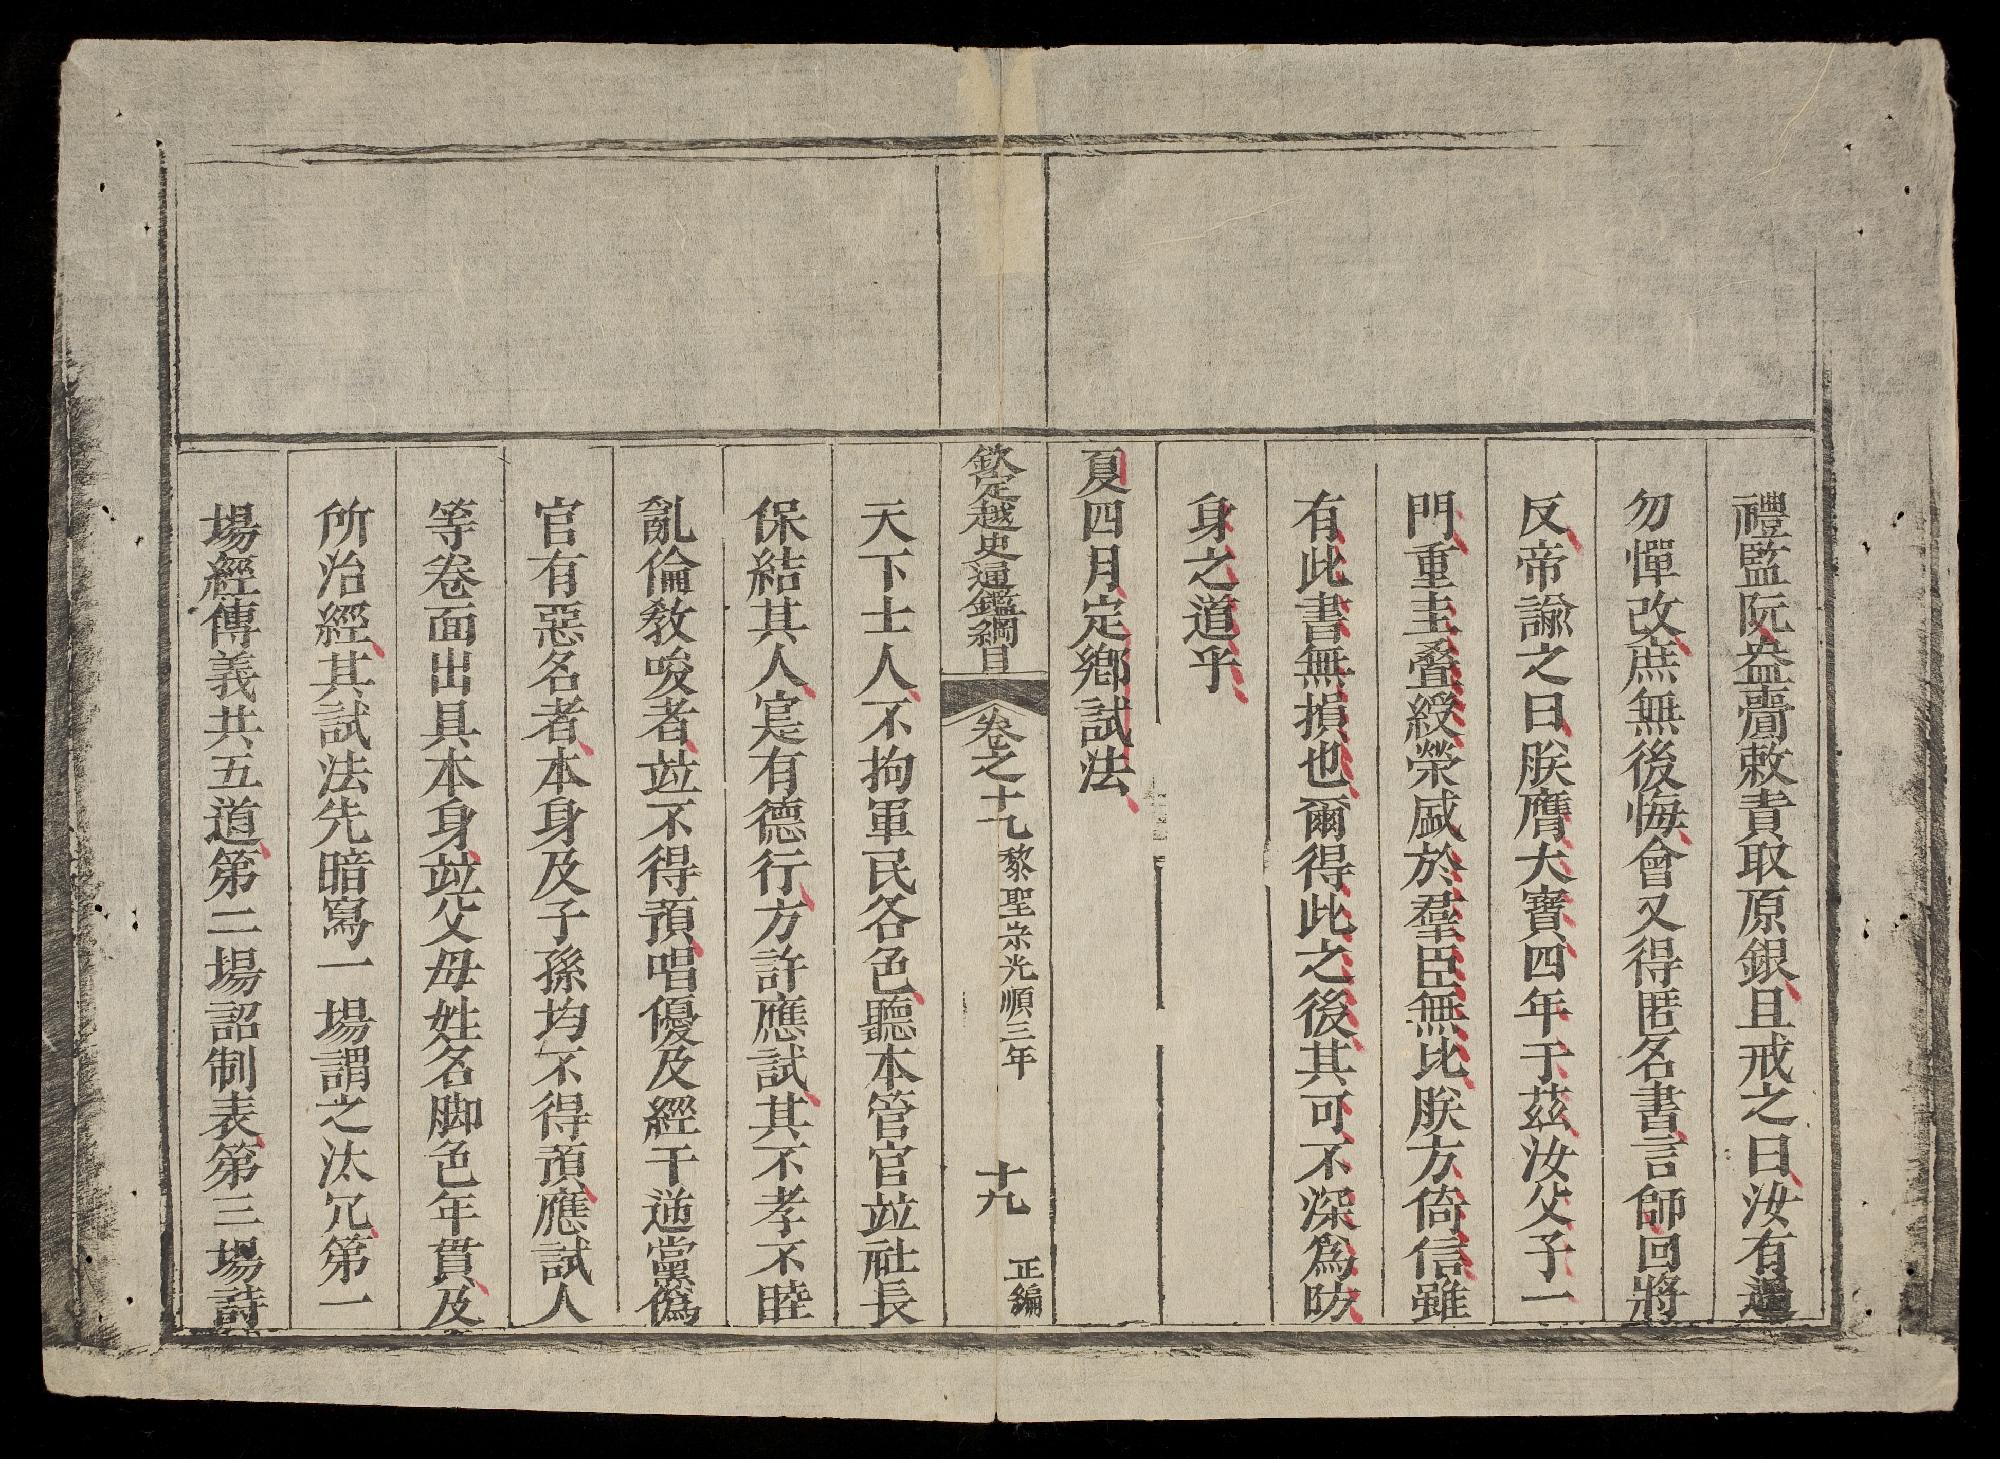 禮監阮盎賷敕責取原銀且戒之曰汝有過
勿憚改庶無後悔會又得匿名書言師回將
反帝諭之曰朕膺大寶四年于茲汝父子一
門重圭疊綬榮盛於羣臣無比朕方倚信雖
有此書無損也爾得此之後其可不深爲防
身之道乎
夏四月定鄉試法
欽定越史通鑑綱目
卷之十九
黎聖宗光順三年
十九
正編
天下士人不拘軍民各色聽本管官竝社長
保結其人寔有德行方許應試其不孝不睦
亂倫教唆者竝不得預唱優及經干逆黨僞
官有惡名者本身及子孫均不得預應試人
等卷面出具本身竝父母姓名脚色年貫及
所治經其試法先暗寫一場謂之汰冗第一
場經傳義共五道第二場詔制表第三場詩